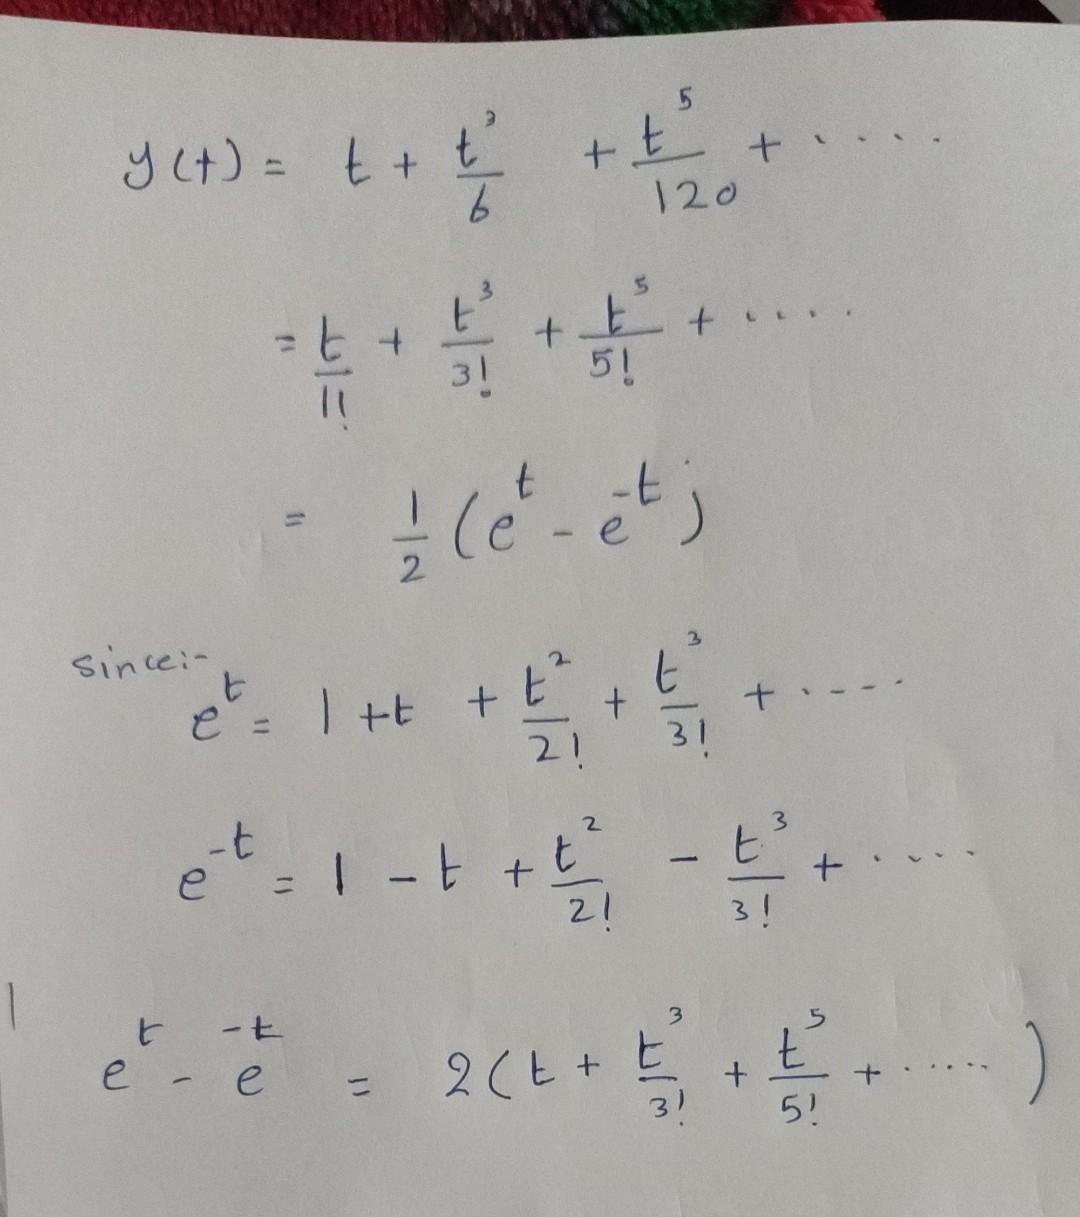 y(t) = t + t³/6 + t⁵/120 + .....
= t/1! + t³/3! + t⁵/5! + .....
= 1/2 (eᵗ - e⁻ᵗ)
since:-
eᵗ = 1 + t + t²/2! + t³/3! + .....
e⁻ᵗ = 1 - t + t²/2! - t³/3! + .....
eᵗ - e⁻ᵗ = 2(t + t³/3! + t⁵/5! + .....)